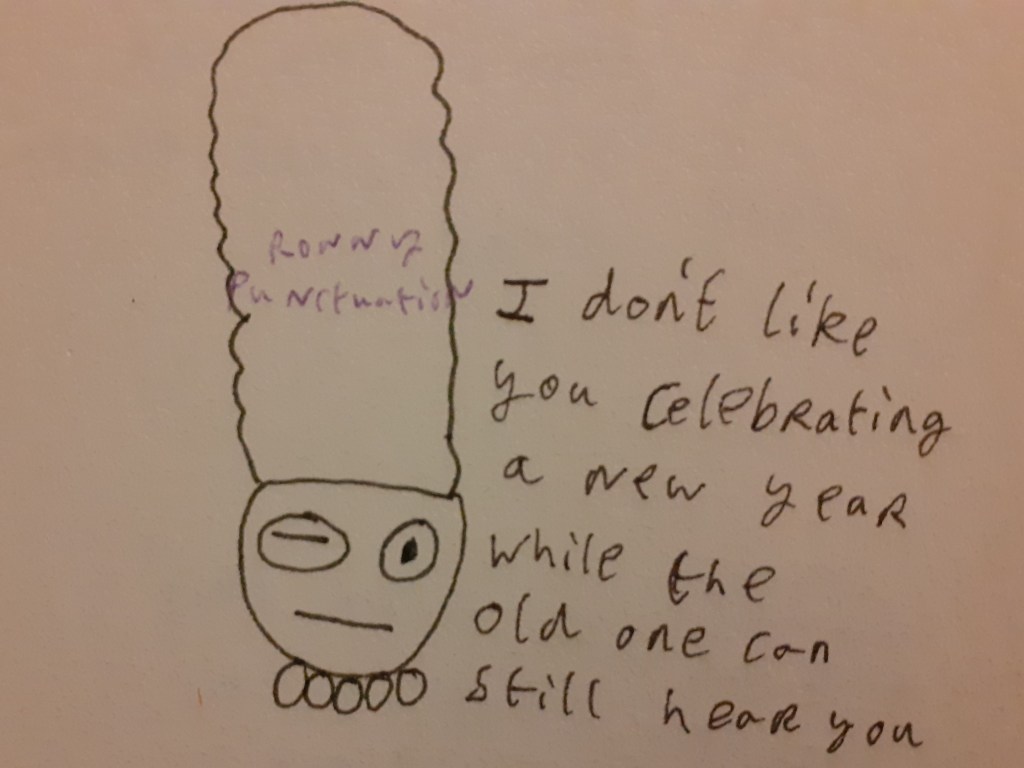 Ronny
Punctuation
I don't like
you celebrating
a new year
while the
old one can
still hear you